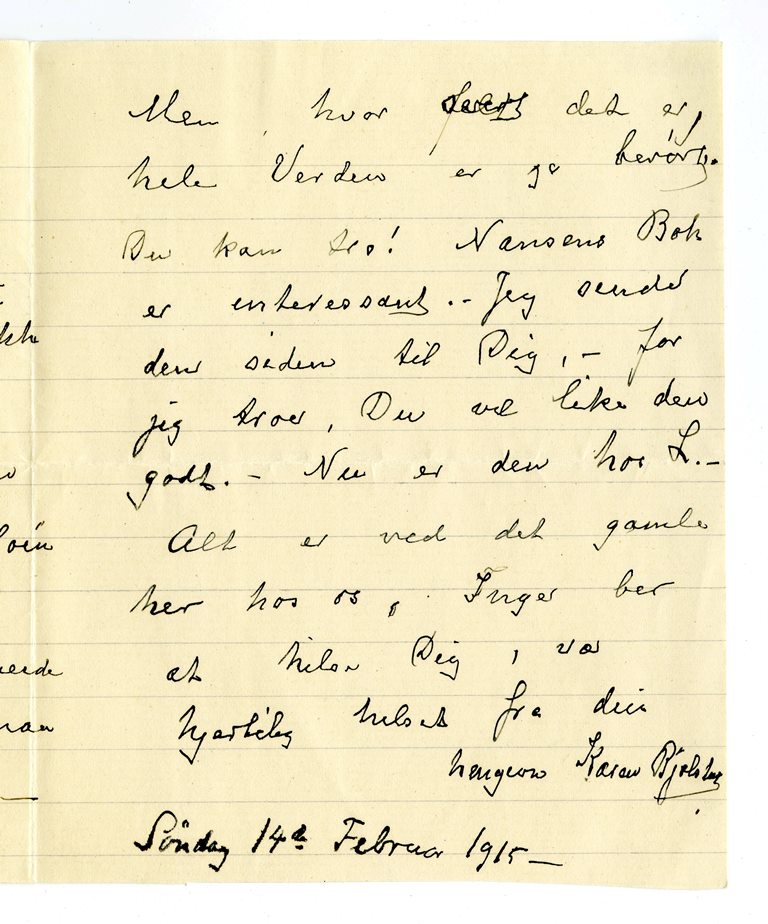 Men, hvor det er,
hele Verden er jo berört.
Du kan tro! Nansens Bok
er interessant.- Jeg sender
den siden til Dig, - for
jeg troer, Du vil like den
godt. - Nu er den hos L.-
Alt er ved det gamle
her hos os, Inger ber
at hilse Dig, vær
hjerteleg helset fra din
hengivne Karen Bjölstad
Söndag 14de Februar 1915 -